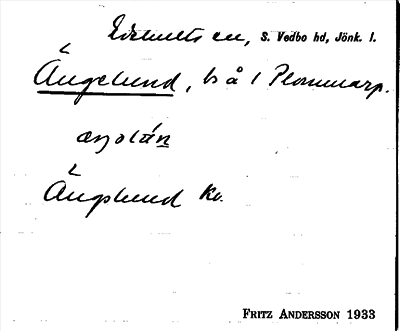 Edshults sn, S. Vedbo hd, Jönk. l.
Ängelund, ls å 1 Plommarp.
Ängslund Kv.
FRITZ ANDERSSON 1933